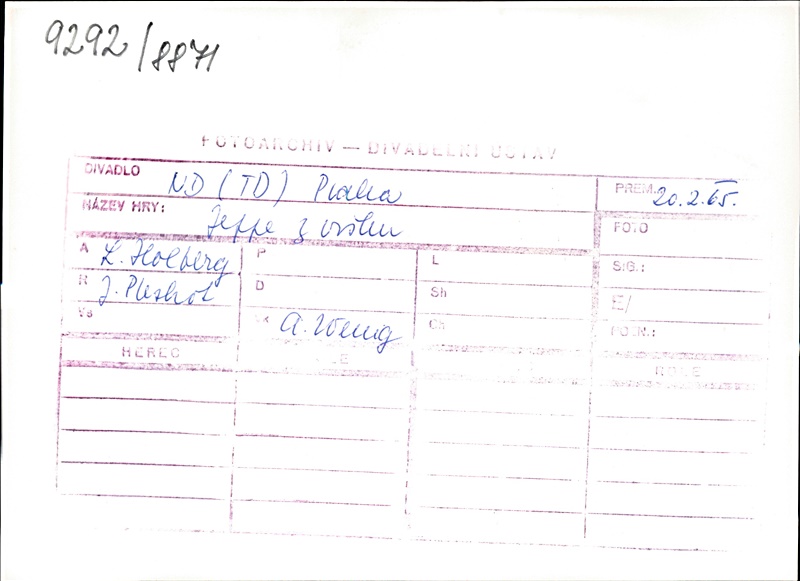 9292/8871
FOTOARCHIV — DIVADELNÍ ÚSTAV
DIVADLO ND (TD) Praha PREM. 20.2.65.
NÁZEV HRY: Jeppe z vršku FOTO
A L. Holberg P L SIG.:
R J. Pleskot D Sh E/
Vs Vk A. Wenig Ch POZN.:
HEREC ROLE